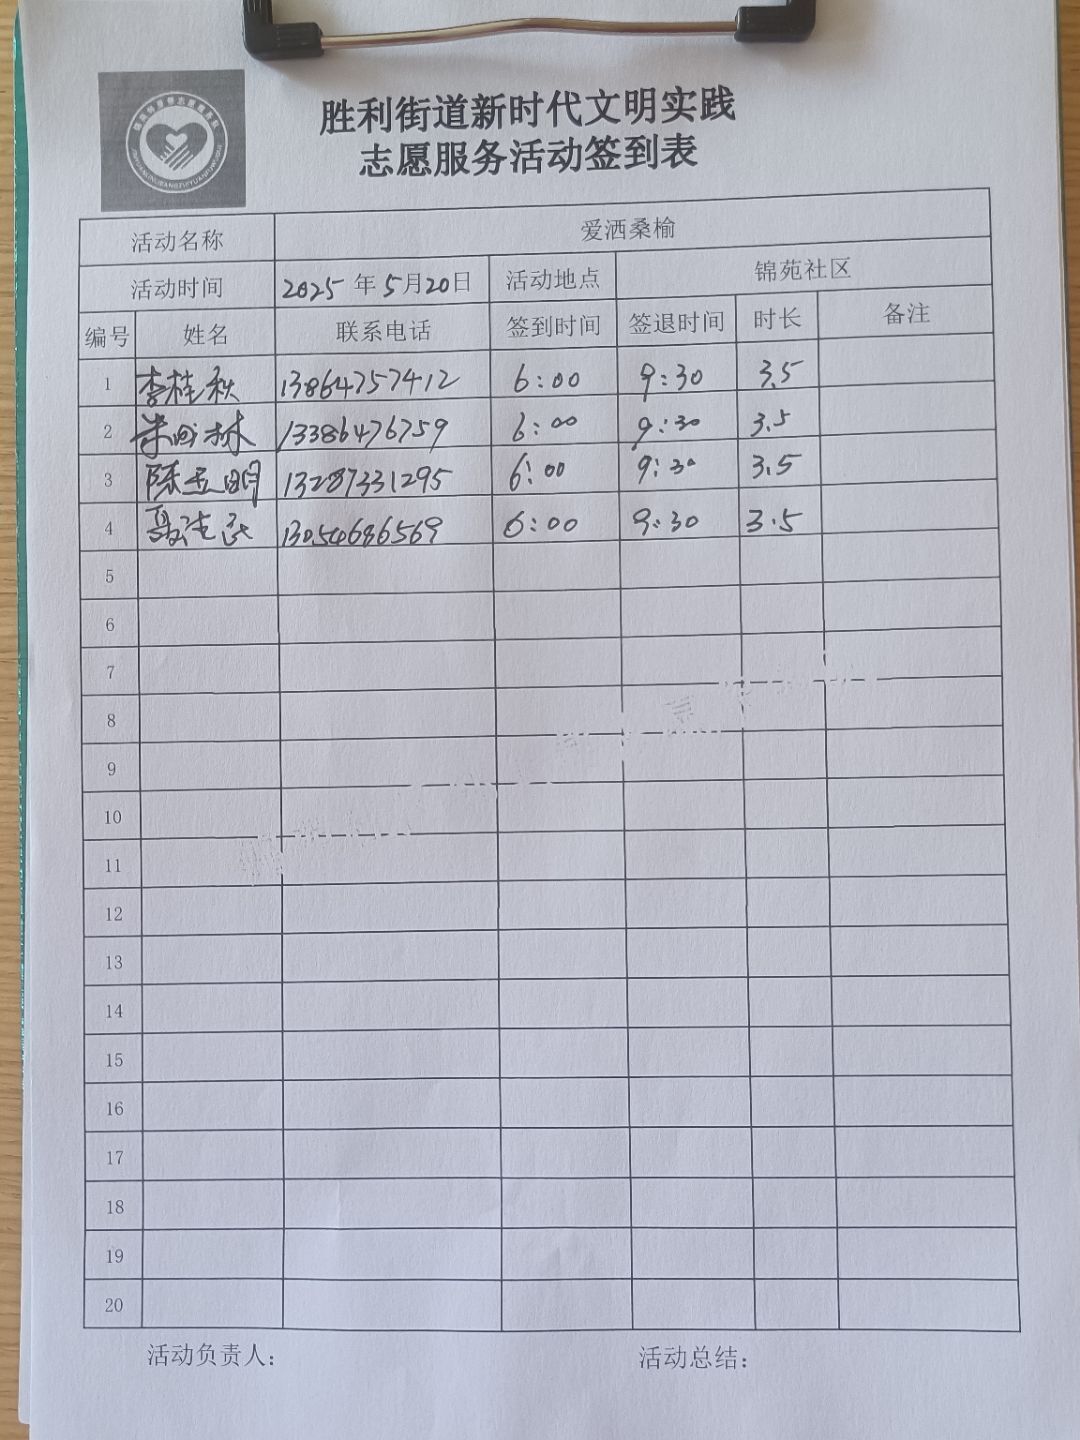 胜利街道新时代文明实践
志愿服务活动签到表
活动名称 爱洒桑榆
活动时间 2025 年 5月20日 活动地点 锦苑社区
编号 姓名 联系电话 签到时间 签退时间 时长 备注
1 李桂秋 13864757412 6:00 9:30 3.5
2 林 13386476759 6:00 9:30 3.5
3 陈玉明 13287331295 6:00 9:30 3.5
4 聂 13054686569 6:00 9:30 3.5
5
6
7
8
9
10
11
12
13
14
15
16
17
18
19
20
活动负责人: 活动总结: